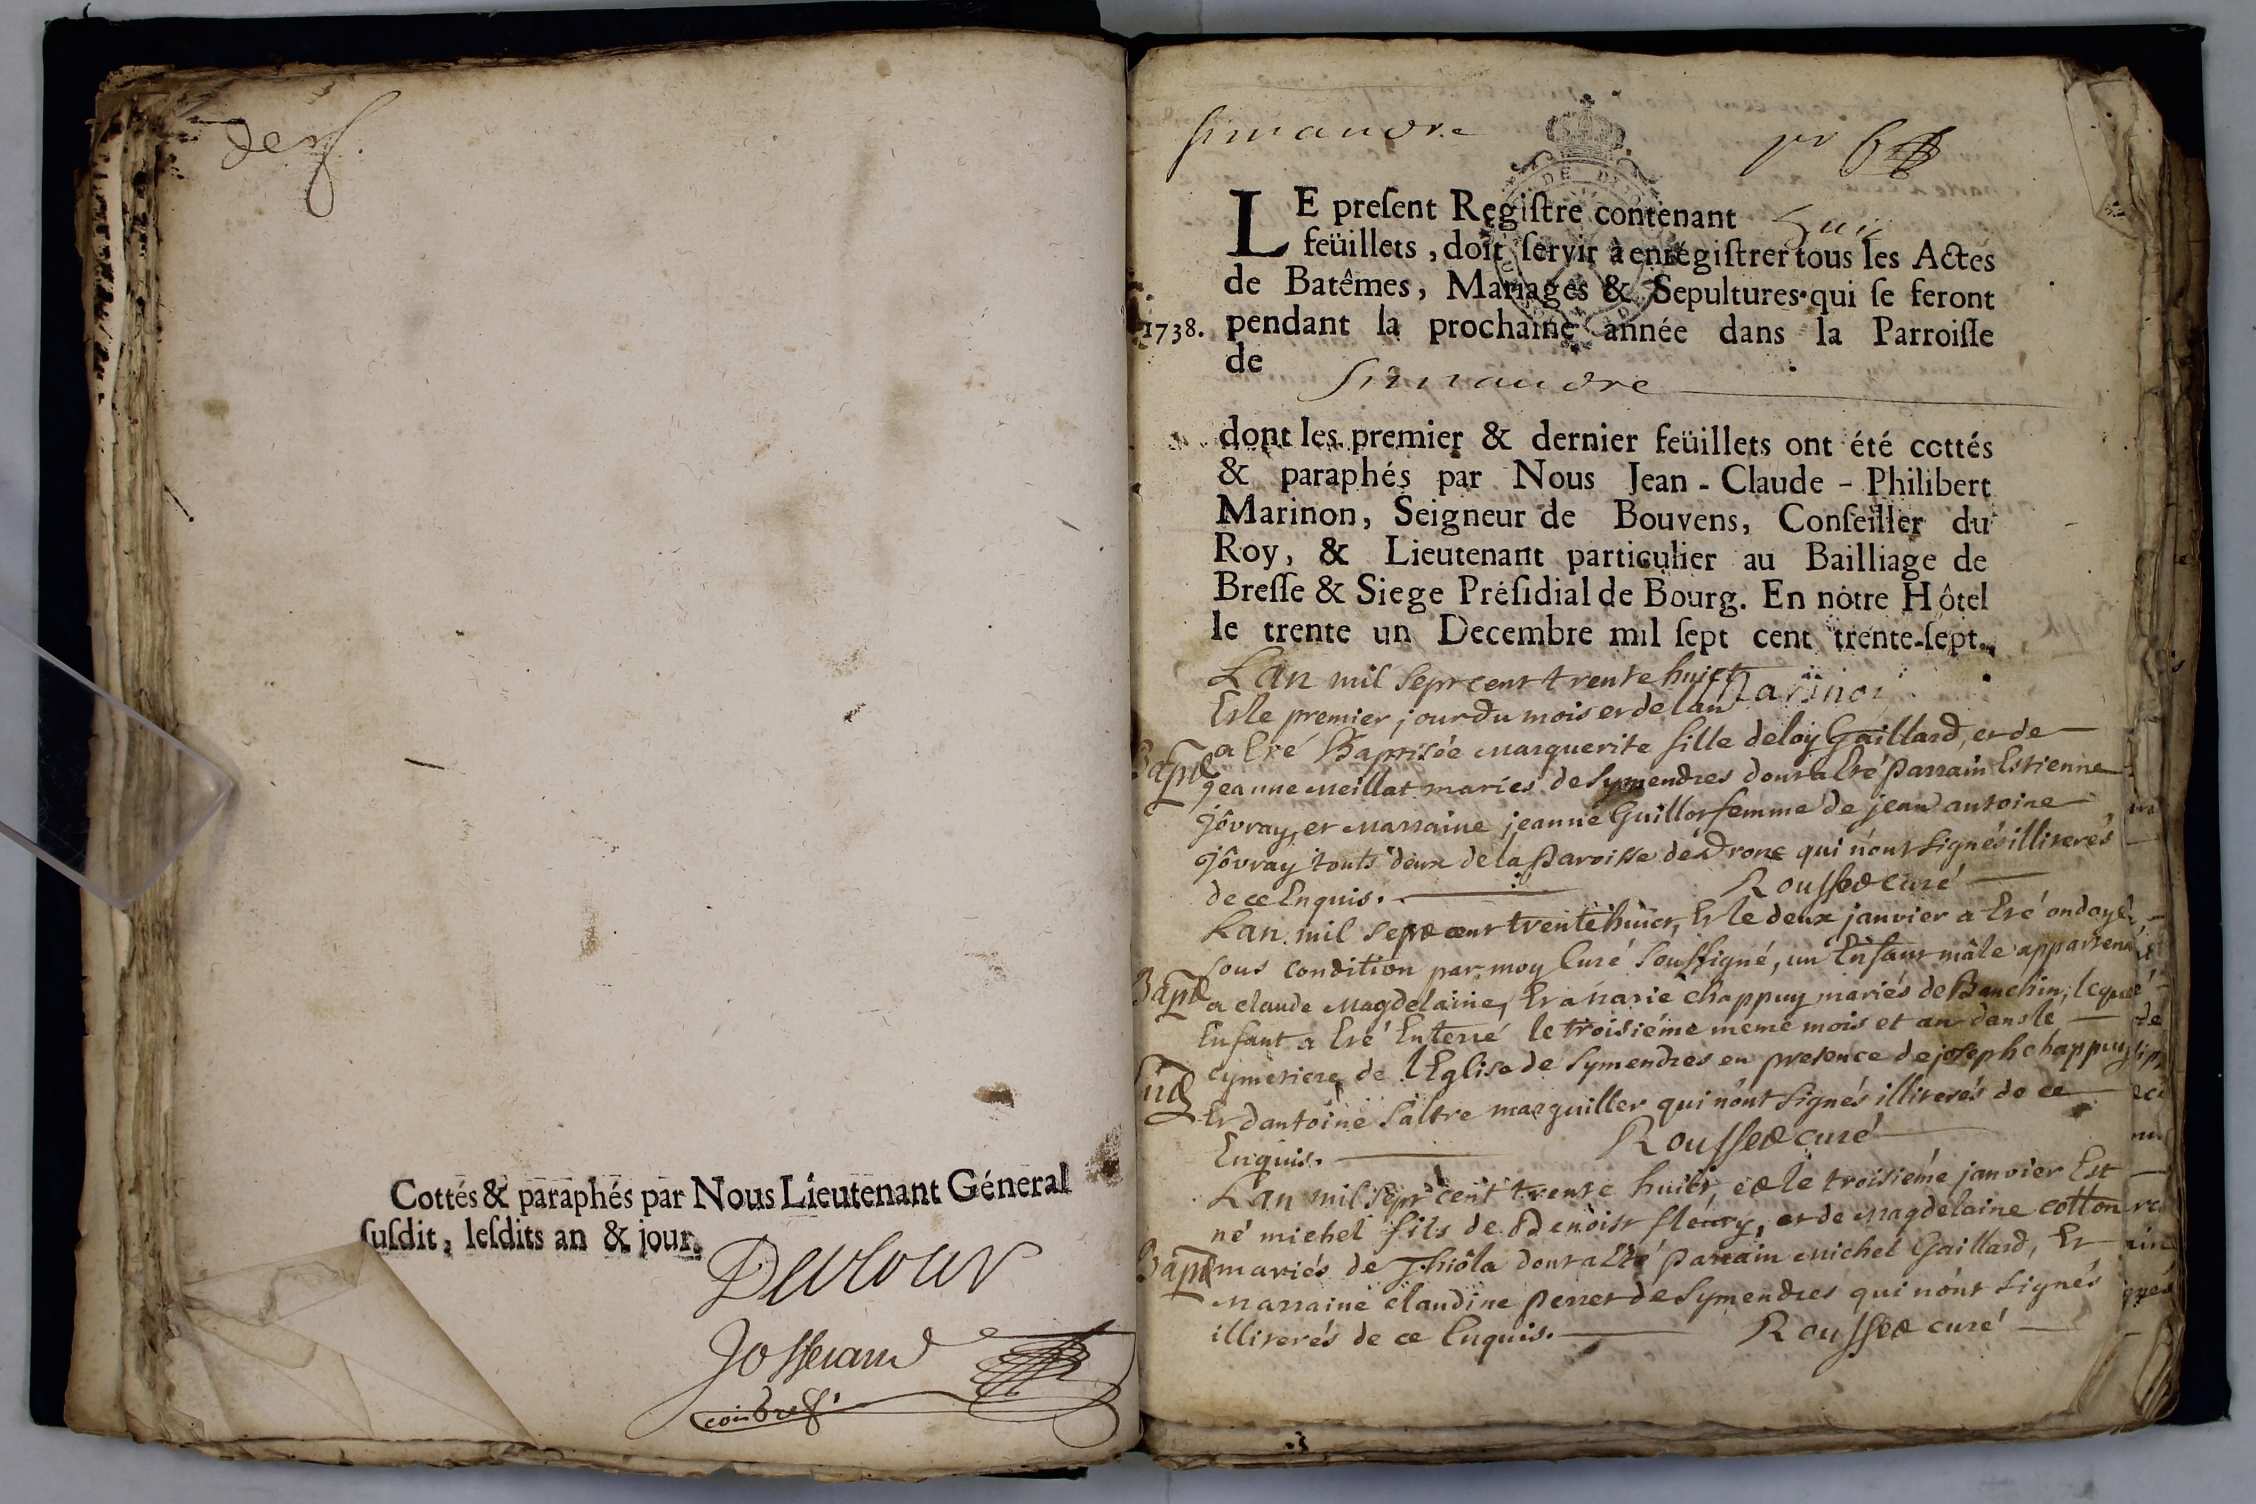 Cottés & paraphés par Nous Lieutenant Géneral
ſuſdit, leſdits an & jour.
Joſſerand
ſimandre
LE preſent Regiſtre contenant huit
feüillets, doit ſervir à enrégiſtrer tous les Actes
de Batêmes, Mariages & Sepultures qui ſe feront
1738. pendant la prochaine année dans la Parroiſſe
de ſimandre
dont les premier & dernier feüillets ont été cottés
& paraphés par Nous Jean-Claude-Philibert
Marinon, Seigneur de Bouvens, Conſeiller du
Roy, & Lieutenant particulier au Bailliage de
Breſſe & Siege Préſidial de Bourg. En nôtre Hôtel
le trente un Decembre mil ſept cent trente-ſept.
Marinon
Lan mil sept cent trente huict
Et le premier jour du mois et de lan
a Eté Baptisée Marguerite fille deloy Gaillard, et de
Bapte jeanne Meillat mariés de Symendres dont a Eté Parrain Estienne
jôvray, et Marraine jeanne Guillot femme de jean antoine
jôvray touts deux de la Paroisse de Drone qui nont signés illiterés
de ce Enquis. Rousset curé
Lan mil sept cent trente huict, Et le deux janvier a Eté ondoyé
sous condition par moy Curé Soussigné, un Enfant mâle appartenant
Bapte a claude Magdelaine, Et a Marie chappuy mariés de Banchin, lequel
Enfant a Eté Enterré le troisiéme meme mois et an dans le
cymetiere de l'Eglise de Symendres en presence de joseph chappuy
Et dantoine Saltre marguiller qui nont signés illiterés de ce
Enquis. Rousset curé
Lan mil sept cent trente huict, et le troisiéme janvier Est
né michel fils de Benoist fleury, et de Magdelaine cotton
Bapte mariés de Thiôla dont a Eté parrain Michel Gaillard, Et
Marraine claudine perret de Symendres qui nont signés
illiterés de ce Enquis. Rousset curé